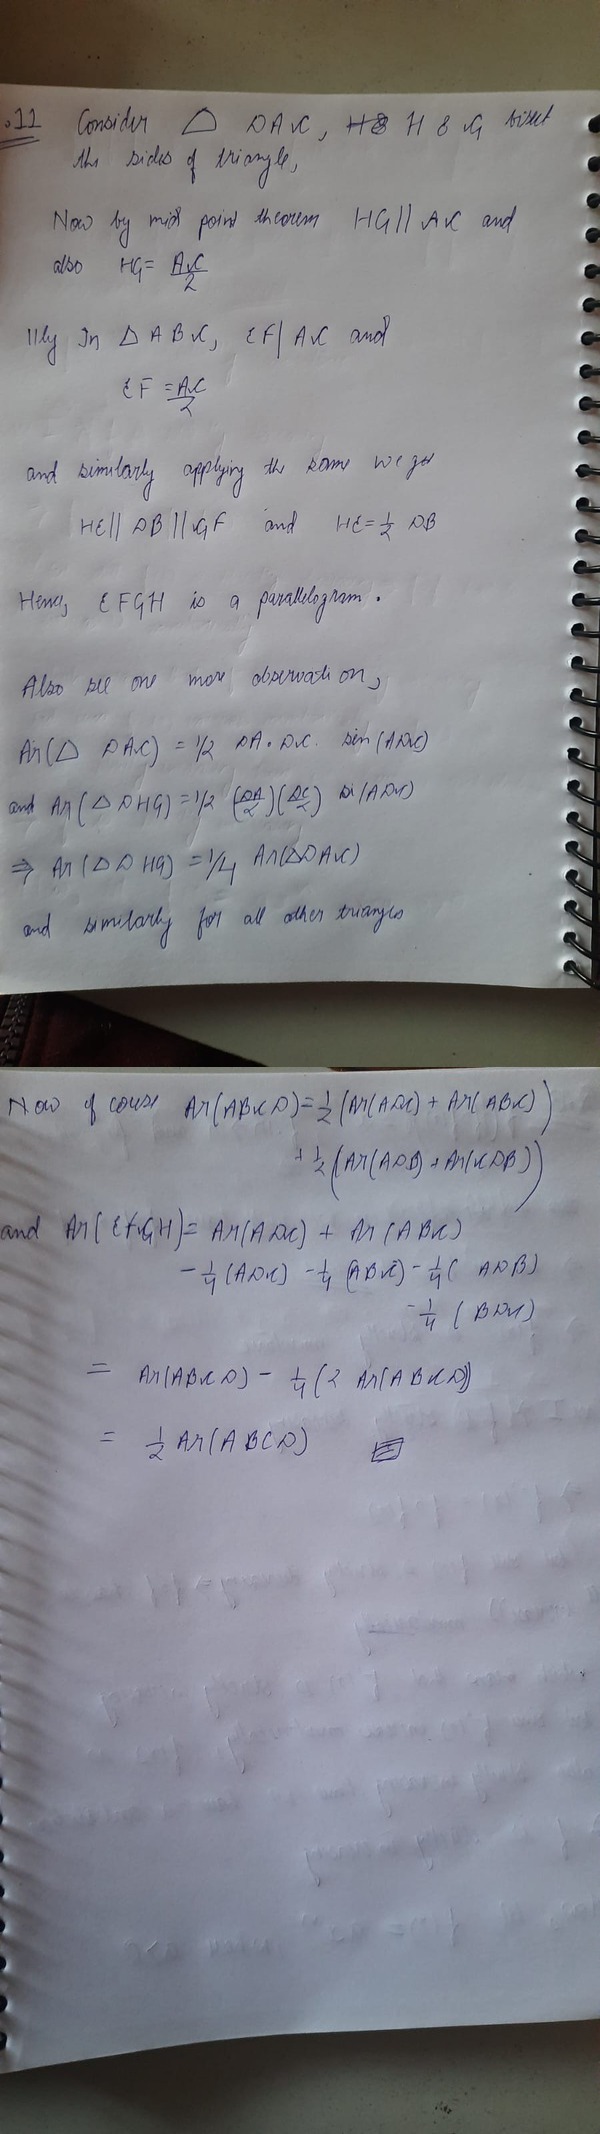 .11 Consider △ DAC, H & G bisect
the sides of triangle,
Now by mid point theorem HG || AC and
also HG = AC/2
||ly In △ ABC, EF| AC and
EF = AC/2
and similarly applying the same we get
HE || DB || GF and HE = 1/2 DB
Hence, EFGH is a parallelogram.
Also see one more observation,
Ar(△ DAC) = 1/2 DA. DC. Sin(ADC)
and Ar(△ DHG) = 1/2 (DA/2)(DC/2) Si(ADC)
⇒ Ar(△ DHG) = 1/4 Ar(△DAC)
and similarly for all other triangles
Now of course Ar(ABCD) = 1/2 (Ar(ADC) + Ar(ABC))
+ 1/2 (Ar(ADB) + Ar(CDB))
and Ar(EFGH) = Ar(ADC) + Ar(ABC)
- 1/4 (ADC) - 1/4 (ABC) - 1/4 ( ADB)
- 1/4 ( BDC)
= Ar(ABCD) - 1/4 (2 Ar(ABCD))
= 1/2 Ar(ABCD)